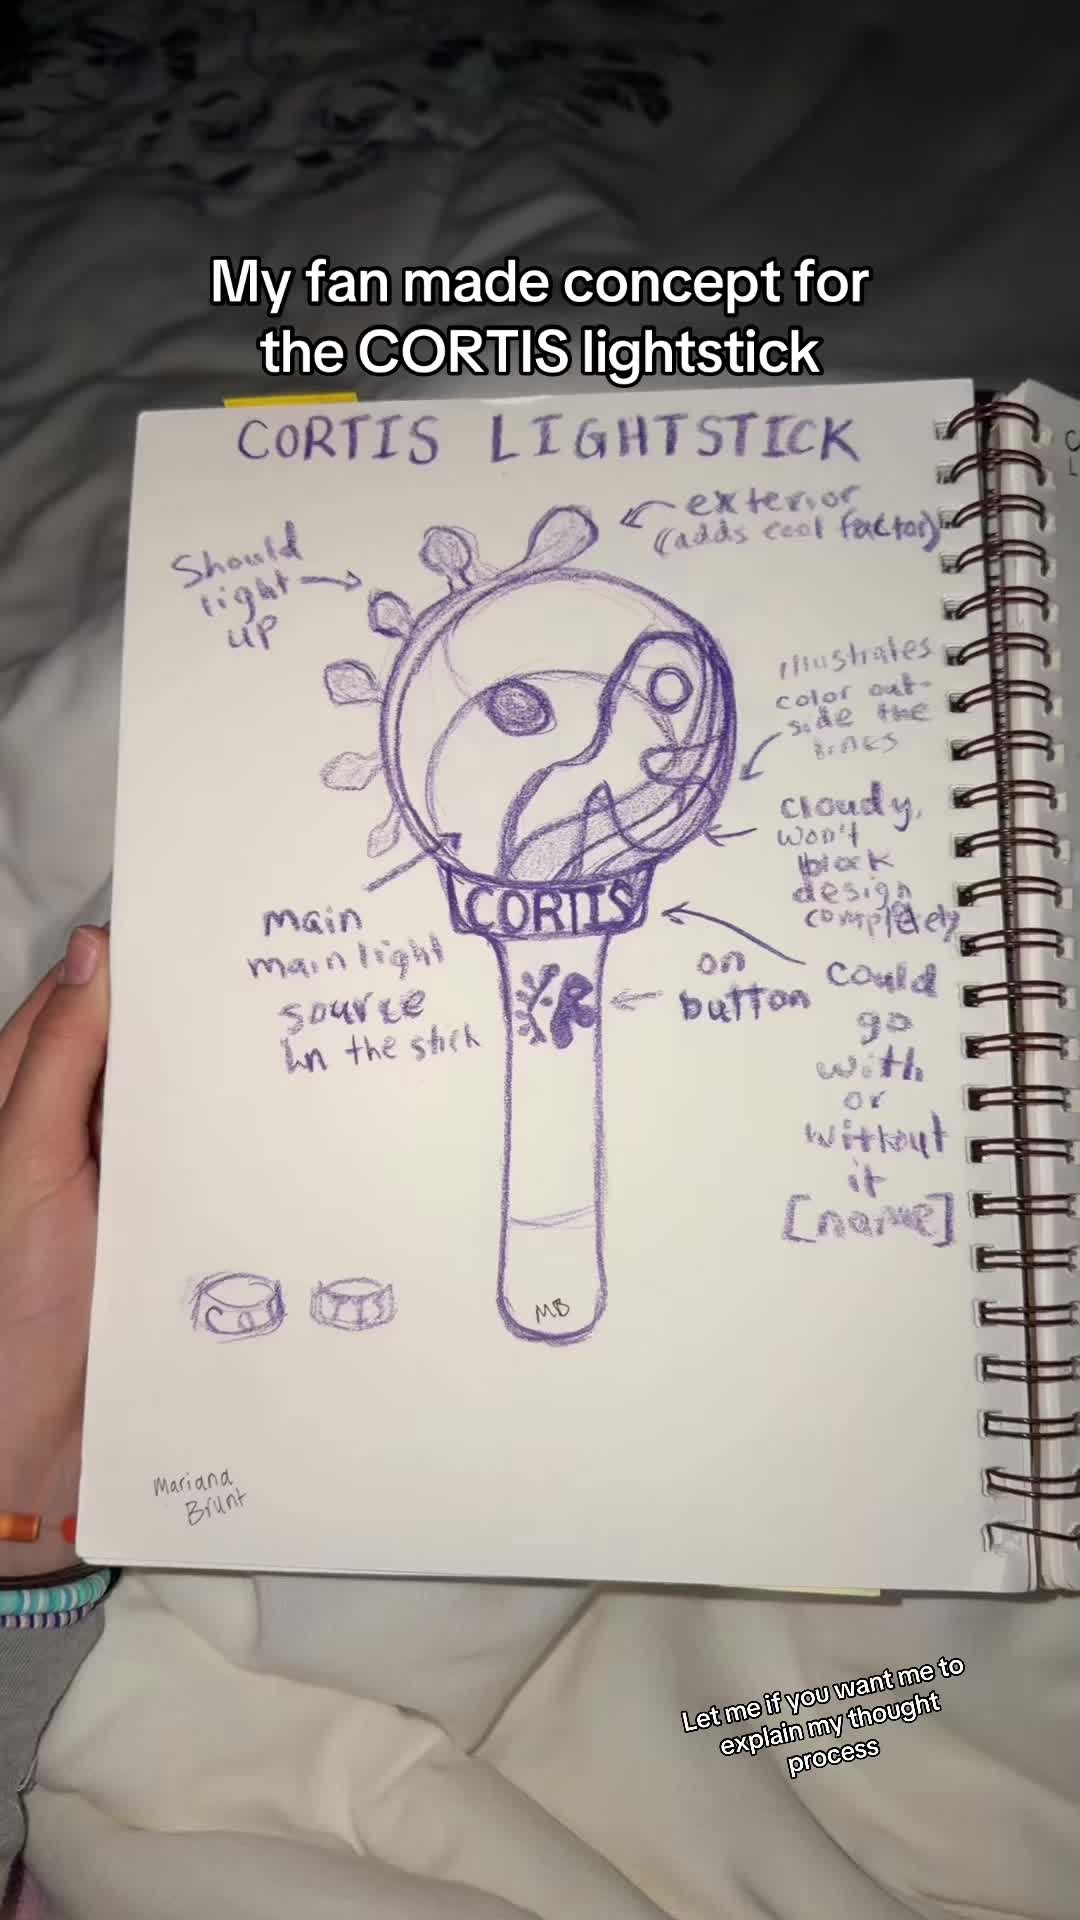 My fan made concept for
the CORTIS lightstick
CORTIS LIGHTSTICK
exterior
(adds cool factor)
Should
light
up
illustrates
color out-
side the
lines
cloudy,
won't
block
design
completely
CORTIS
main
main light
source
in the stick
on
button
could
go
with
or
without
it
[name]
MB
COR
TIS
Mariana
Brunt
Let me if you want me to
explain my thought
process